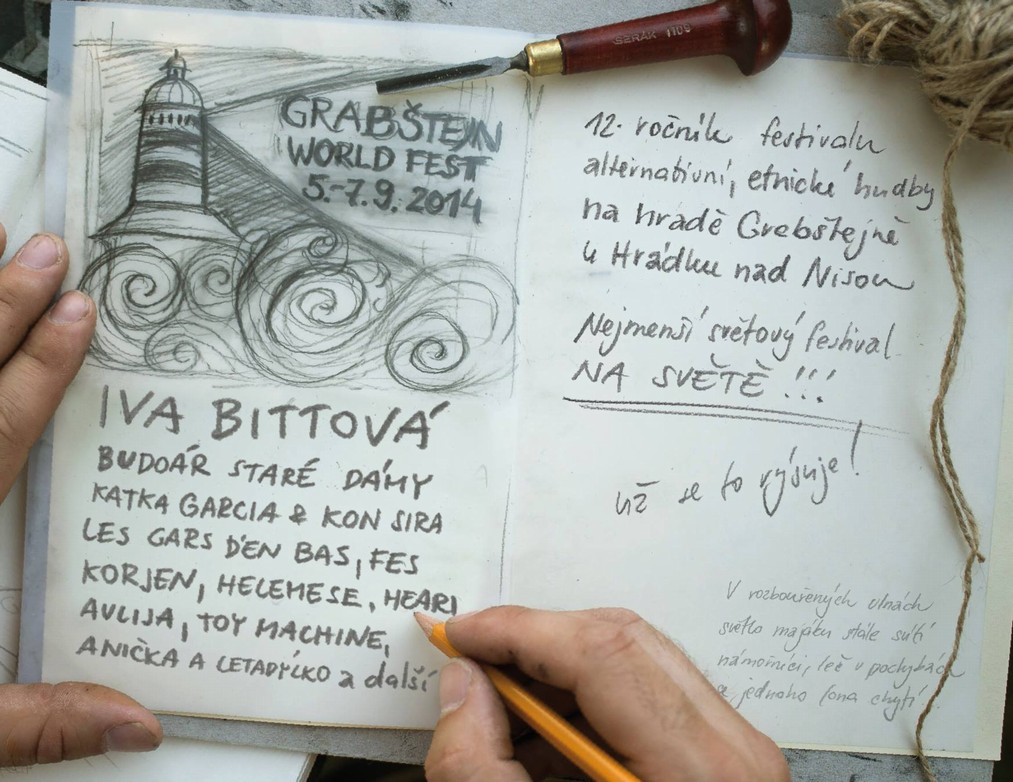 SERAK 1108
GRABŠTEJN
WORLD FEST
5.-7.9. 2014
IVA BITTOVÁ
BUDOÁR STARÉ DÁMY
KATKA GARCIA & KON SIRA
LES GARS D'EN BAS, FES
KORJEN, HELEMESE, HEARI
AULIJA, TOY MACHINE,
ANIČKA A LETADÝLKO a další
12. ročník festivalu
alternativní, etnické hudby
na hradě Grabštejně
u Hrádku nad Nisou
Nejmenší světový festival
NA SVĚTĚ!!!
už se to rýsuje!
V rozbouřených vlnách
světlo majáku stále svítí
námořníci, leč v pochybách
jednoho lona chytí